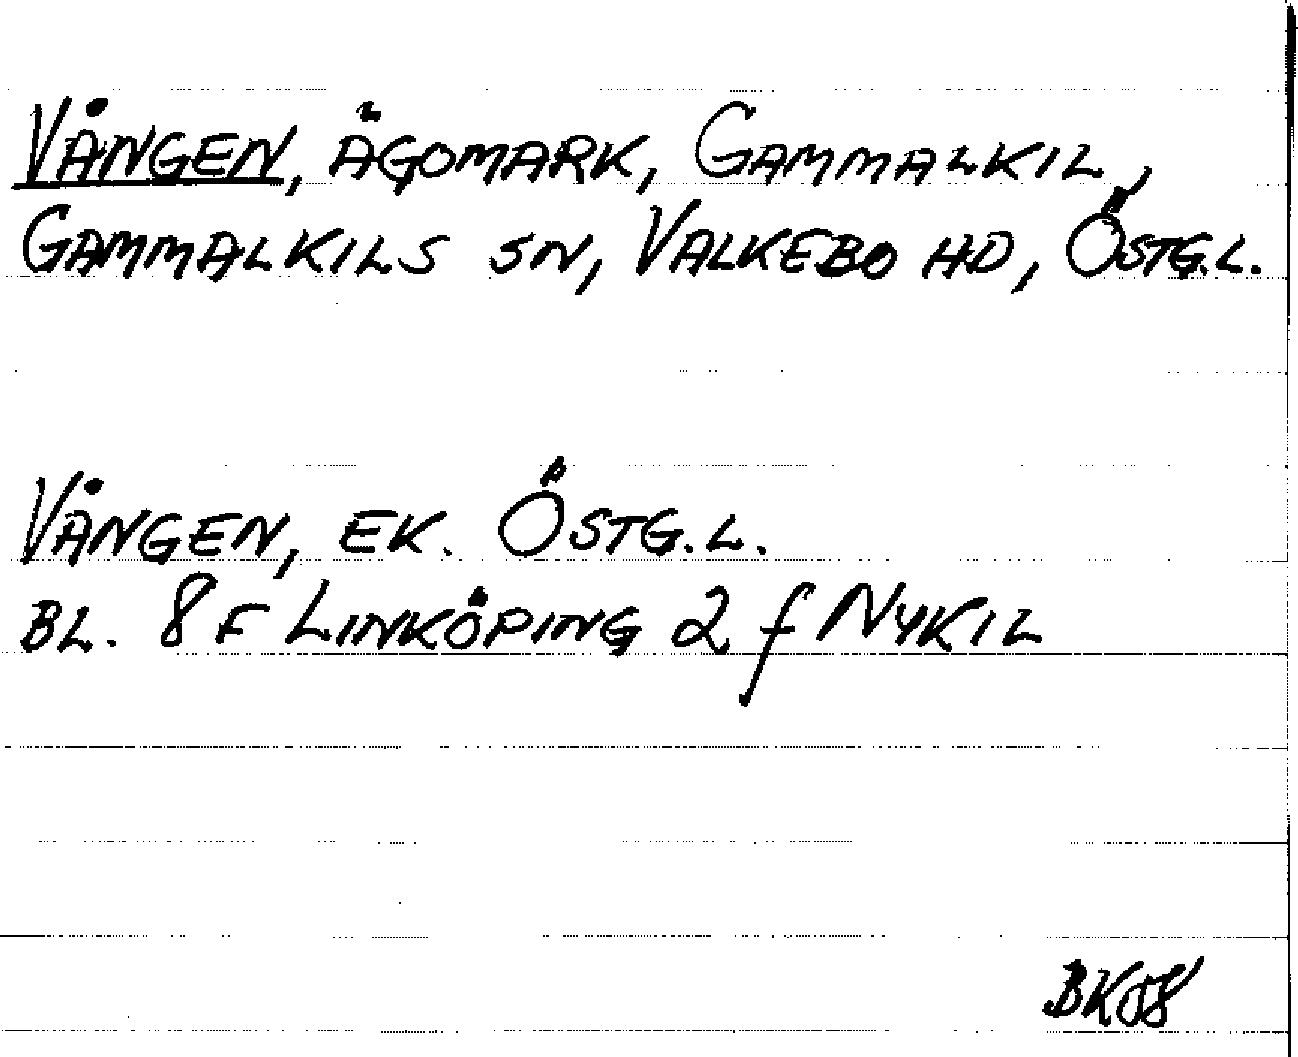 VÅNGEN, ÄGOMARK, GAMMALKIL,
GAMMALKILS SN, VALKEBO HD, ÖSTG.L.
VÅNGEN, EK. ÖSTG.L.
BL. 8F LINKÖPING 2 f NYKIL
BK08